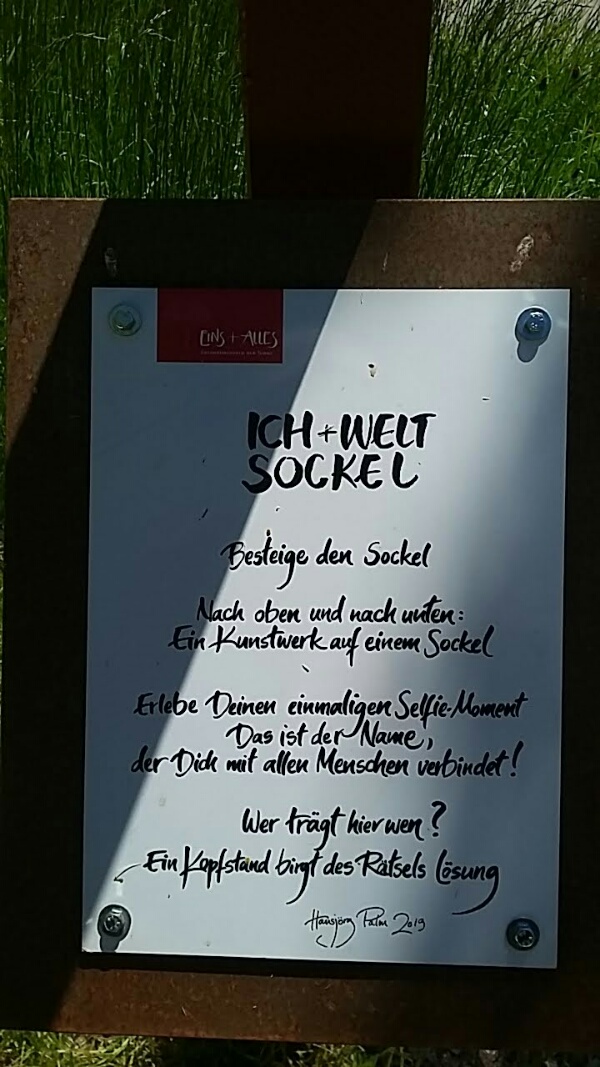 EINS + ALLES
ICH + WELT
SOCKEL
Besteige den Sockel
Nach oben und nach unten:
Ein Kunstwerk auf einem Sockel
Erlebe Deinen einmaligen Selfie-Moment
Das ist der Name,
der Dich mit allen Menschen verbindet!
Wer trägt hier wen?
Ein Kopfstand birgt des Rätsels Lösung
Hansjörg Palm 2019